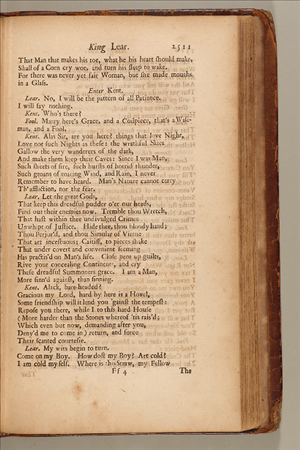 King Lear. 2511
That Man that makes his toe, what he his heart should make,
Shall of a Corn cry woe, and turn his sleep to wake.
For there was never yet fair Woman, but she made mouths
in a Glass.
Enter Kent.
Lear. No, I will be the pattern of all Patience,
I will say nothing.
Kent. Who's there?
Fool. Marry here's Grace, and a Codpiece, that's a Wise-
man, and a Fool.
Kent. Alas Sir, are you here? things that love Night,
Love not such Nights as these: the wrathful Skies
Gallow the very wanderers of the dark,
And make them keep their Caves: Since I was Man,
Such sheets of fire, such bursts of horrid thunder,
Such groans of roaring Wind, and Rain, I never
Remember to have heard. Man's Nature cannot carry
Th' affliction, nor the fear.
Lear. Let the great Gods,
That keep this dreadful pudder o'er our heads,
Find out their enemies now. Tremble thou Wretch,
That hast within thee undivulged Crimes
Unwhipt of Justice. Hide thee, thou bloody hand;
Thou Perjur'd, and thou Simular of Virtue
That art incestuous; Caitiff, to pieces shake
That under covert and convenient seeming
Has practis'd on Man's life. Close pent up guilts,
Rive your concealing Continents, and cry
These dreadful Summoners grace. I am a Man,
More sinn'd against, than sinning.
Kent. Alack, bare-headed?
Gracious my Lord, hard by here is a Hovel,
Some friendship will it lend you 'gainst the tempest:
Repose you there, while I to this hard House
(More harder than the Stones whereof 'tis rais'd;
Which even but now, demanding after you,
Deny'd me to come in) return, and force
Their scanted courtesie.
Lear. My wits begin to turn.
Come on my Boy. How dost my Boy? Art cold?
I am cold my self. Where is this Straw, my Fellow
Ff 4 The